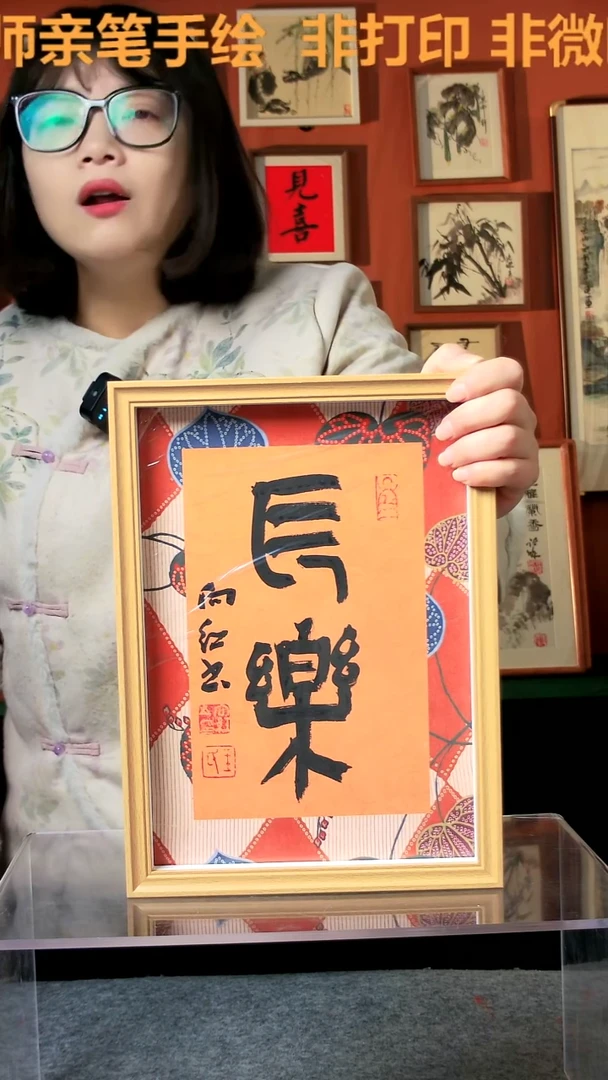 师亲笔手绘 非打印 非微
見喜
長樂
向红书